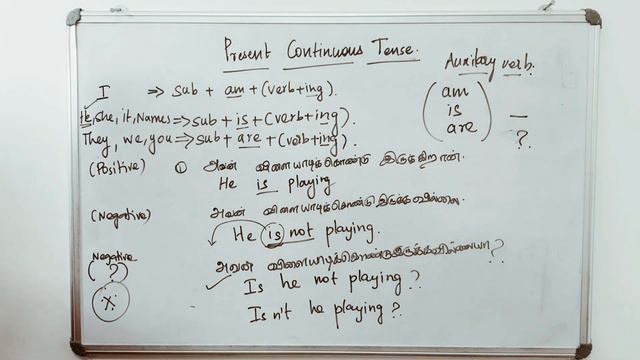 Present Continuous Tense.
Auxilary verb.
I ⇒ sub + am + (verb+ing).
am
He, she, it, Names ⇒ sub + is + (verb+ing).
is
They, we, you ⇒ sub + are + (verb+ing).
are
?
(Positive) ① அவன் விளையாடிக்கொண்டு இருக்கிறான்.
He is playing
(Negative) அவன் விளையாடிக்கொண்டு இருக்கவில்லை.
He is not playing.
Negative
(?) அவன் விளையாடிக்கொண்டு இருக்கவில்லையா?
✓ Is he not playing?
Is n't he playing?